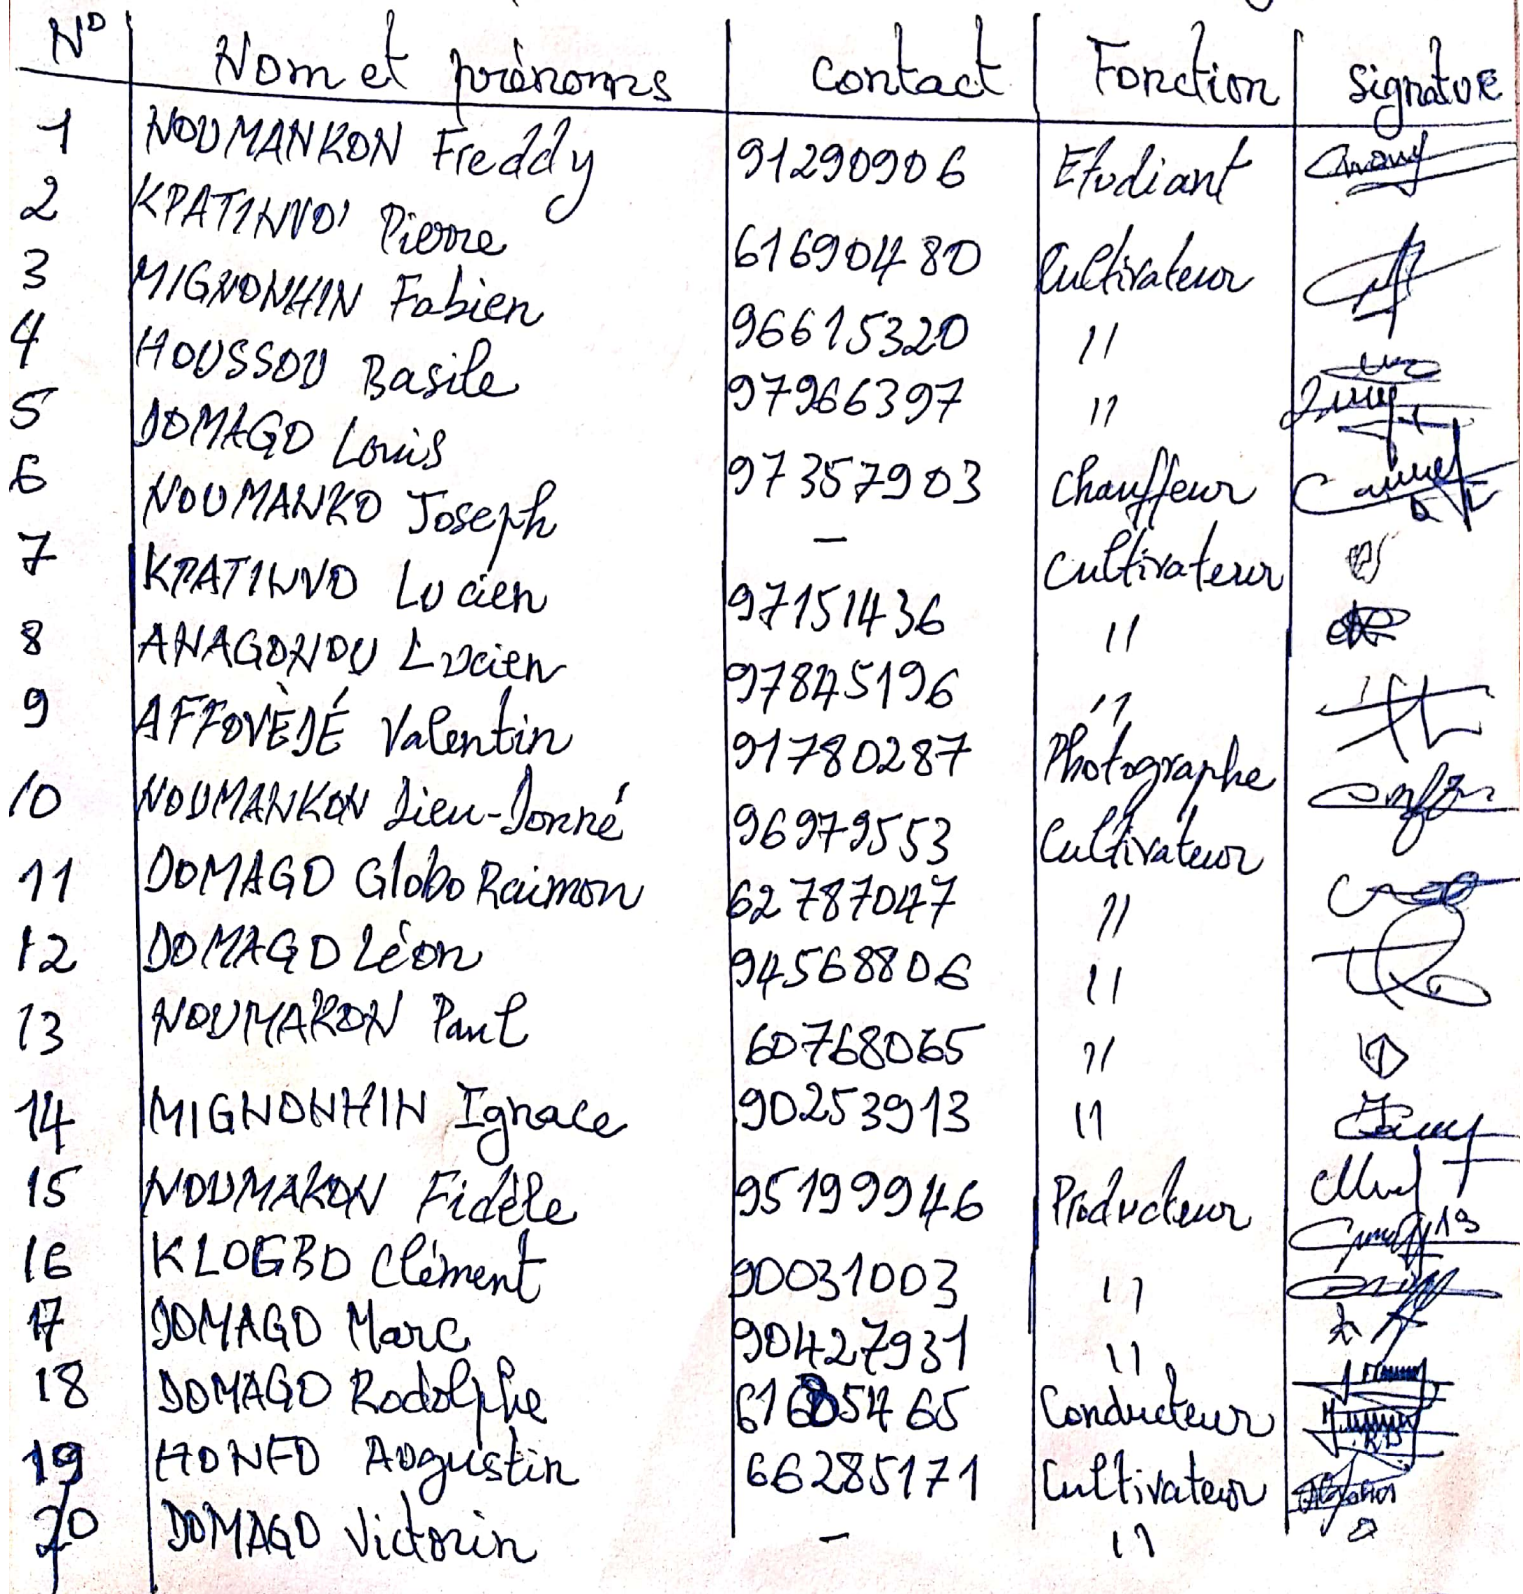 N° Nom et prénoms contact Fonction Signature
1 NOUMANKON Freddy 91290906 Etudiant
2 KPATINVO' Pierre 61690480 Cultivateur
3 MIGNONHIN Fabien 96615320 11
4 HOUSSOU Basile 97966397 11
5 DOMAGO Louis 97357903 Chauffeur
6 NOUMANKO Joseph - Cultivateur
7 KPATINVO Lucien 97151436 11
8 ANAGONOU Lucien 97845196 11
9 AFFOVÈDÉ Valentin 91780287 Photographe
10 NOUMANKON Dieu-Donné 96979553 Cultivateur
11 DOMAGO Globo Raimon 62787047 11
12 DOMAGO Léon 94568806 11
13 NOUMAKON Paul 60768065 11
14 MIGNONHIN Ignace 90253913 11
15 NOUMAKON Fidèle 95199946 Producteur
16 KLOGBO Clément 90031003 11
17 DOMAGO Marc 90427931 11
18 DOMAGO Rodolphe Conducteur
19 HONFO Augustin 66285171 Cultivateur
20 DOMAGO Victorin - 11